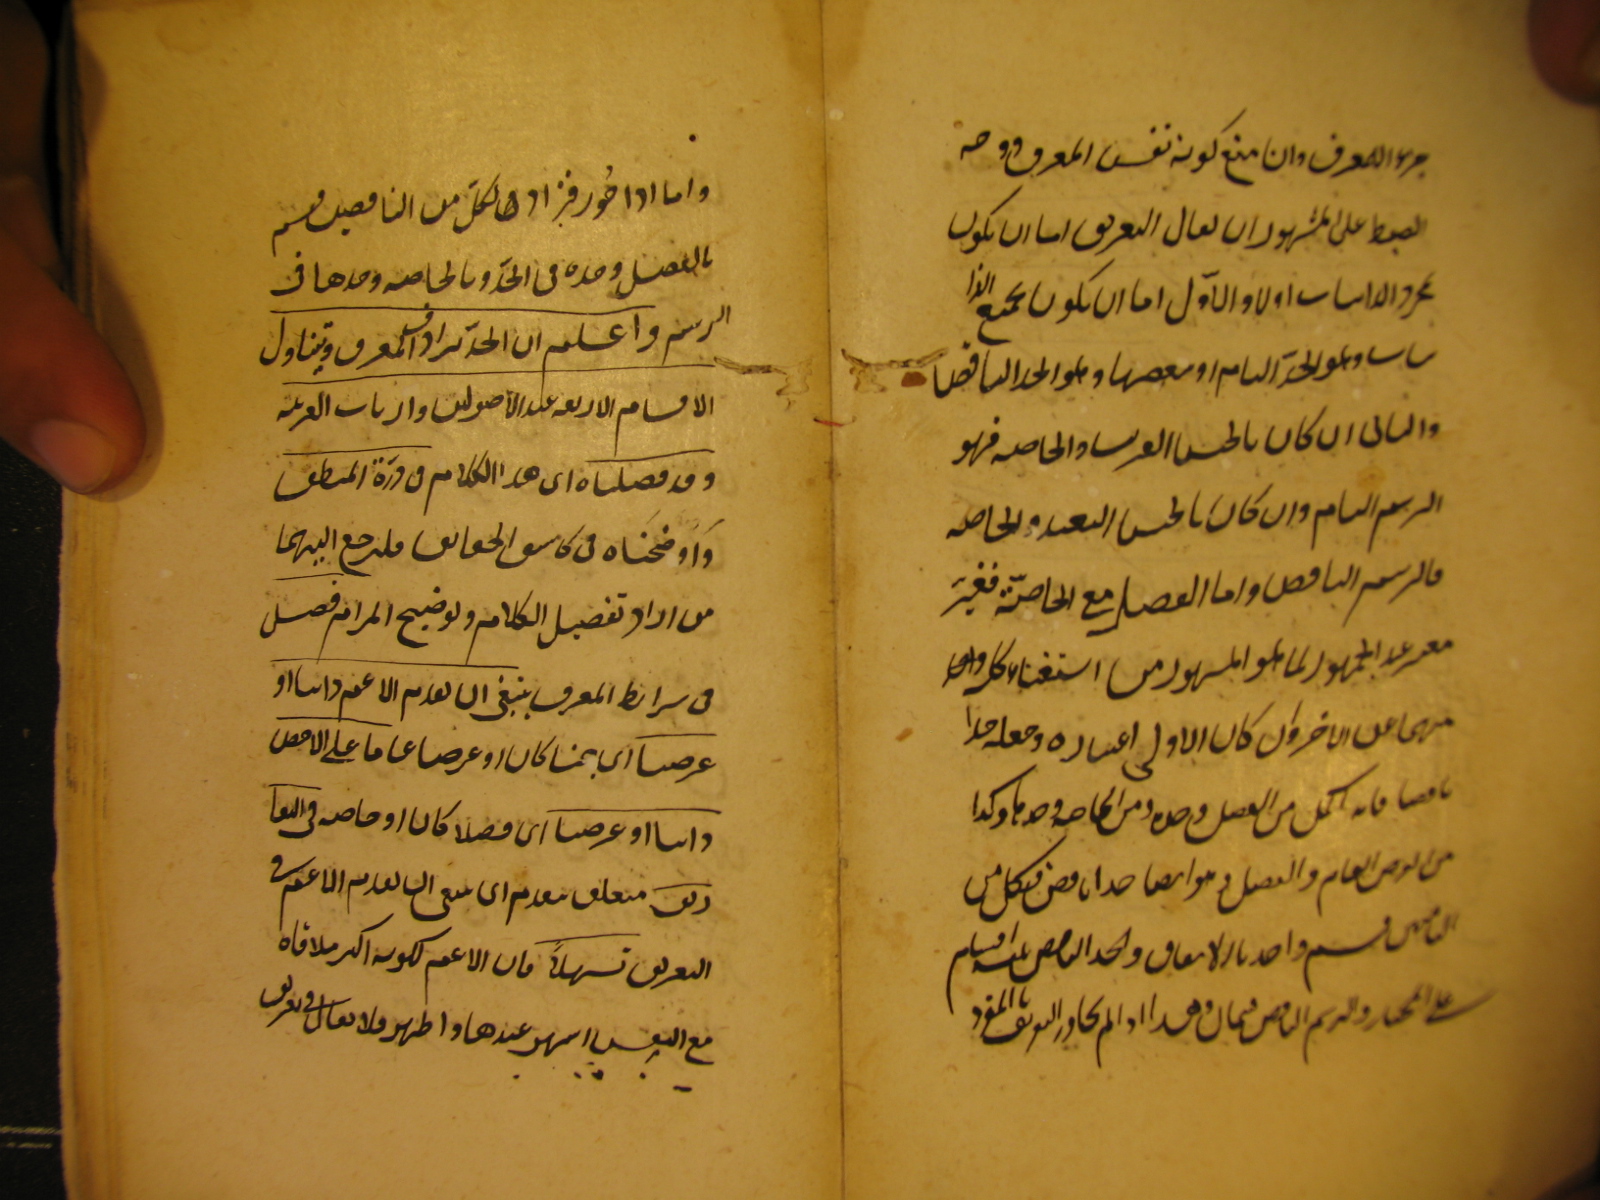 جزء المعرف وان منع كونه نفس المعرف ووجه
الضبط على المشهور ان يقال التعريف اما ان يكون
بمجرد الذاتيات اولا والاوّل اما ان يكون بجميع الذا
تيات وهو الحدّ التام او ببعضها وهو الحد الناقص
والثانى ان كان بالجنس القريب والخاصه فهو
الرسم التام وان كان بالجنس البعيد والخاصه
فالرسم الناقص واما الفصل مع الخاصّة فغير
معتبر عند الجمهور لما هو المشهور من استغناء كل واحد
منهما عن الآخر وان كان الاولى اعتباره وجعله حدا
ناقصا فانه اكمل من الفصل وحده ومن الخاصه وحدها وكذا
من العرض العام والفصل وهو ايضا حد ناقص فلكل من
الناقصين قسم واحد بالاتفاق وللحد الناقص ثلثه اقسام
على المختار وللرسم الناقص قسمان وهذا اذا لم يجوز التعريف بالمفرد
واما اذا جُوز فيزاد لكلّ من الناقصين قسم
بالفصل وحده فى الحدّ وبالخاصه وحدها فى
الرسم واعلم ان الحدّ يرادف المعرف ويتناول
الاقسام الاربعه عند الاصوليين وارباب العربيه
وقد فصلناه اى هذا الكلام فى درّة المنطق
وَاَوضحنَاه فى كاسـ الحقايق فليرجع اليهما
من اراد تفصيل الكلام وتوضيح المرام فصل
فى شرائط المعرف ينبغى ان يقدم الاعم ذاتيا او
عرضيا اى جنسا كان او عرضا عاما على الاخص
ذاتيا او عرضيا اى فصلا كان او خاصه فى التعا
ريف متعلق بيقدم اى ينبغى ان يقدم الاعم فى
التعريف تسهيلاً فان الاعم لكونه اكثر ملاقاه
مع النفس اشهر عندها واظهر فلا يقال فى تعريف